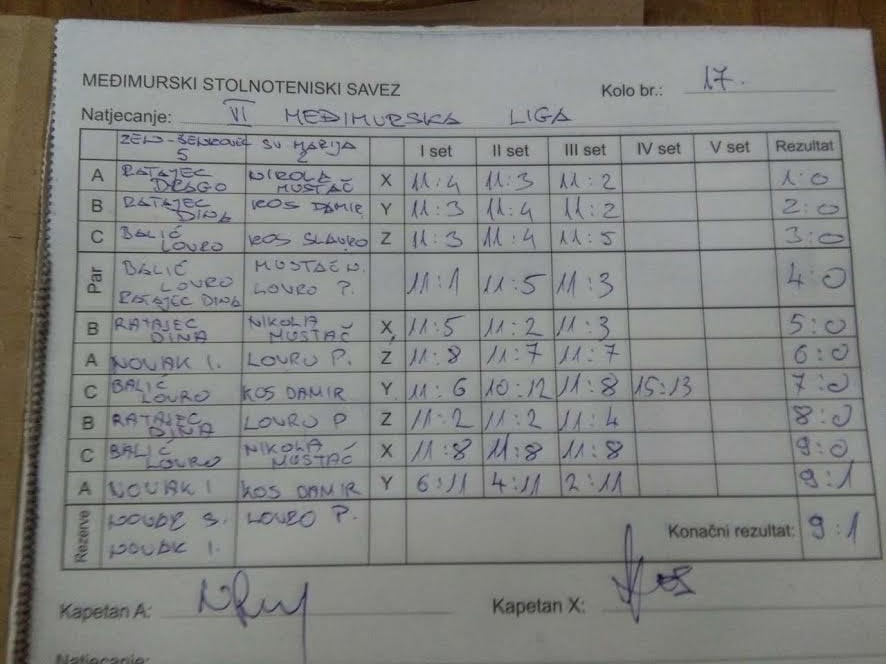 MEĐIMURSKI STOLNOTENISKI SAVEZ Kolo br.: 17.
Natjecanje: VI MEĐIMURSKA LIGA
SV MARIJA I set II set III set IV set V set Rezultat
5 2
A RATAJEC DRAGO NIKOLA MUSTAČ X 11:4 11:3 11:2 1:0
B RATAJEC DINA KOS DAMIR Y 11:3 11:4 11:2 2:0
C BALIĆ LOVRO KOS SLAVKO Z 11:3 11:4 11:5 3:0
Par BALIĆ LOVRO RATAJEC DINA MUSTAČ N. LOVRO P. 11:1 11:5 11:3 4:0
B RATAJEC DINA NIKOLA MUSTAČ X 11:5 11:2 11:3 5:0
A NOVAK I. LOVRO P. Z 11:8 11:7 11:7 6:0
C BALIĆ LOVRO KOS DAMIR Y 11:6 10:12 11:8 15:13 7:0
B RATAJEC DINA LOVRO P Z 11:2 11:2 11:4 8:0
C BALIĆ LOVRO NIKOLA MUSTAČ X 11:8 11:8 11:8 9:0
A NOVAK I KOS DAMIR Y 6:11 4:11 2:11 9:1
Rezerve S. LOVRO P. Konačni rezultat: 9:1
NOVAK I.
Kapetan A: Kapetan X:
Natjecanje: